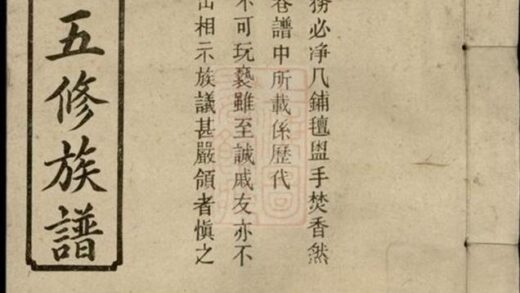 務必净几鋪氈盥手焚香然
卷譜中所載係歷代
不可玩褻雖至誠戚友亦不
出相示族議甚嚴領者慎之
五修族譜